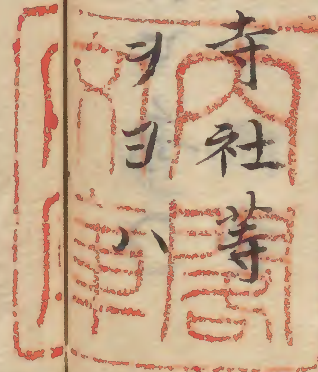 寺社等
ヲヨハ